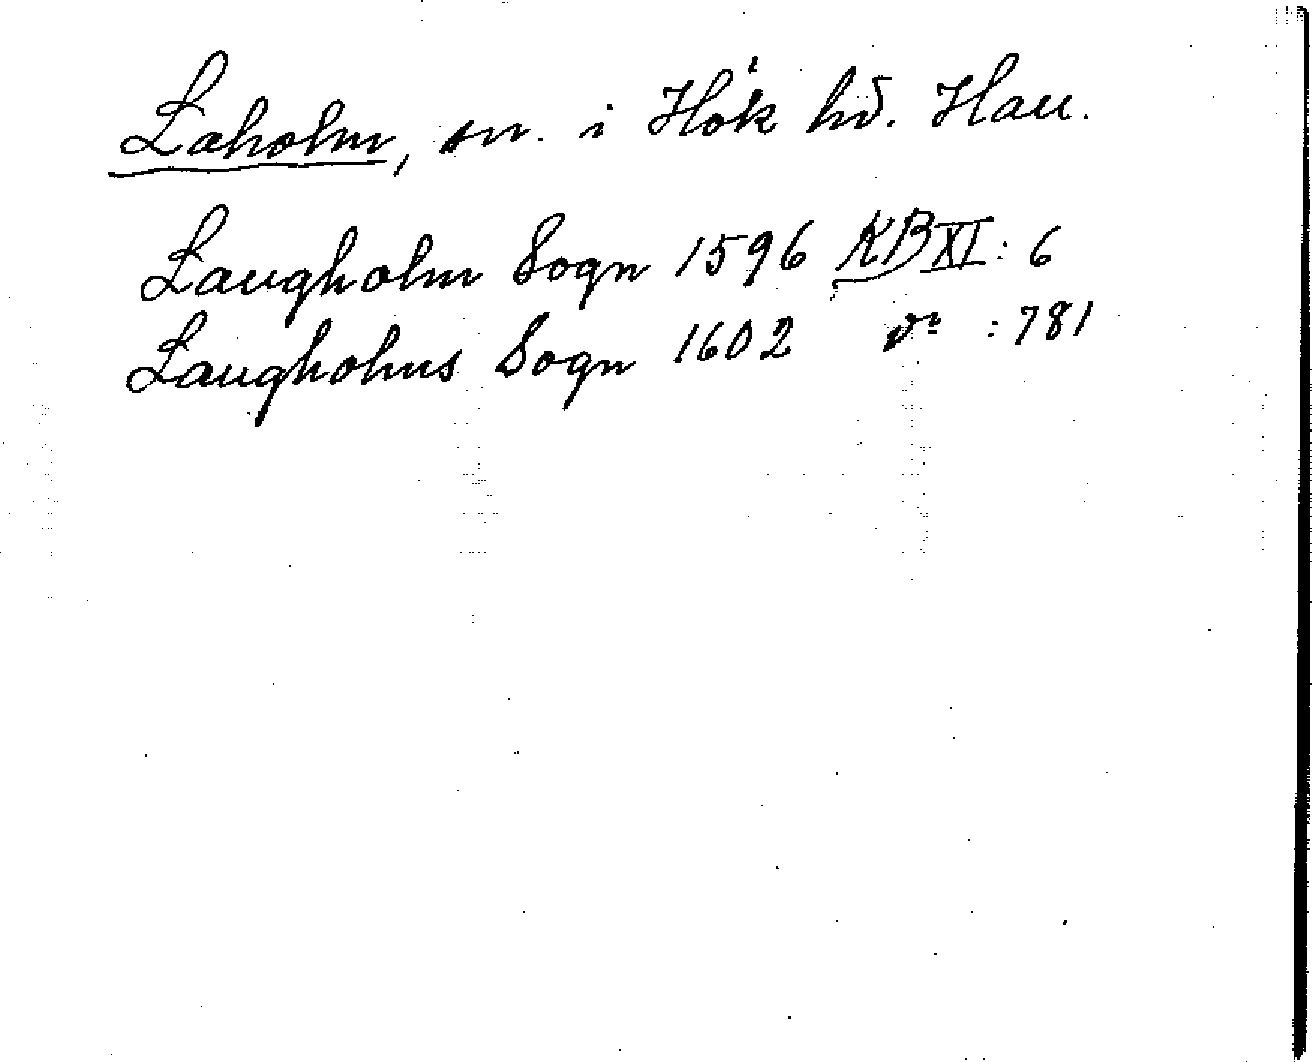 Laholm, sn. i Hök hd. Hall.
Laugholm Sogn 1596 KB XI: 6
Laugholms Sogn 1602 do : 781